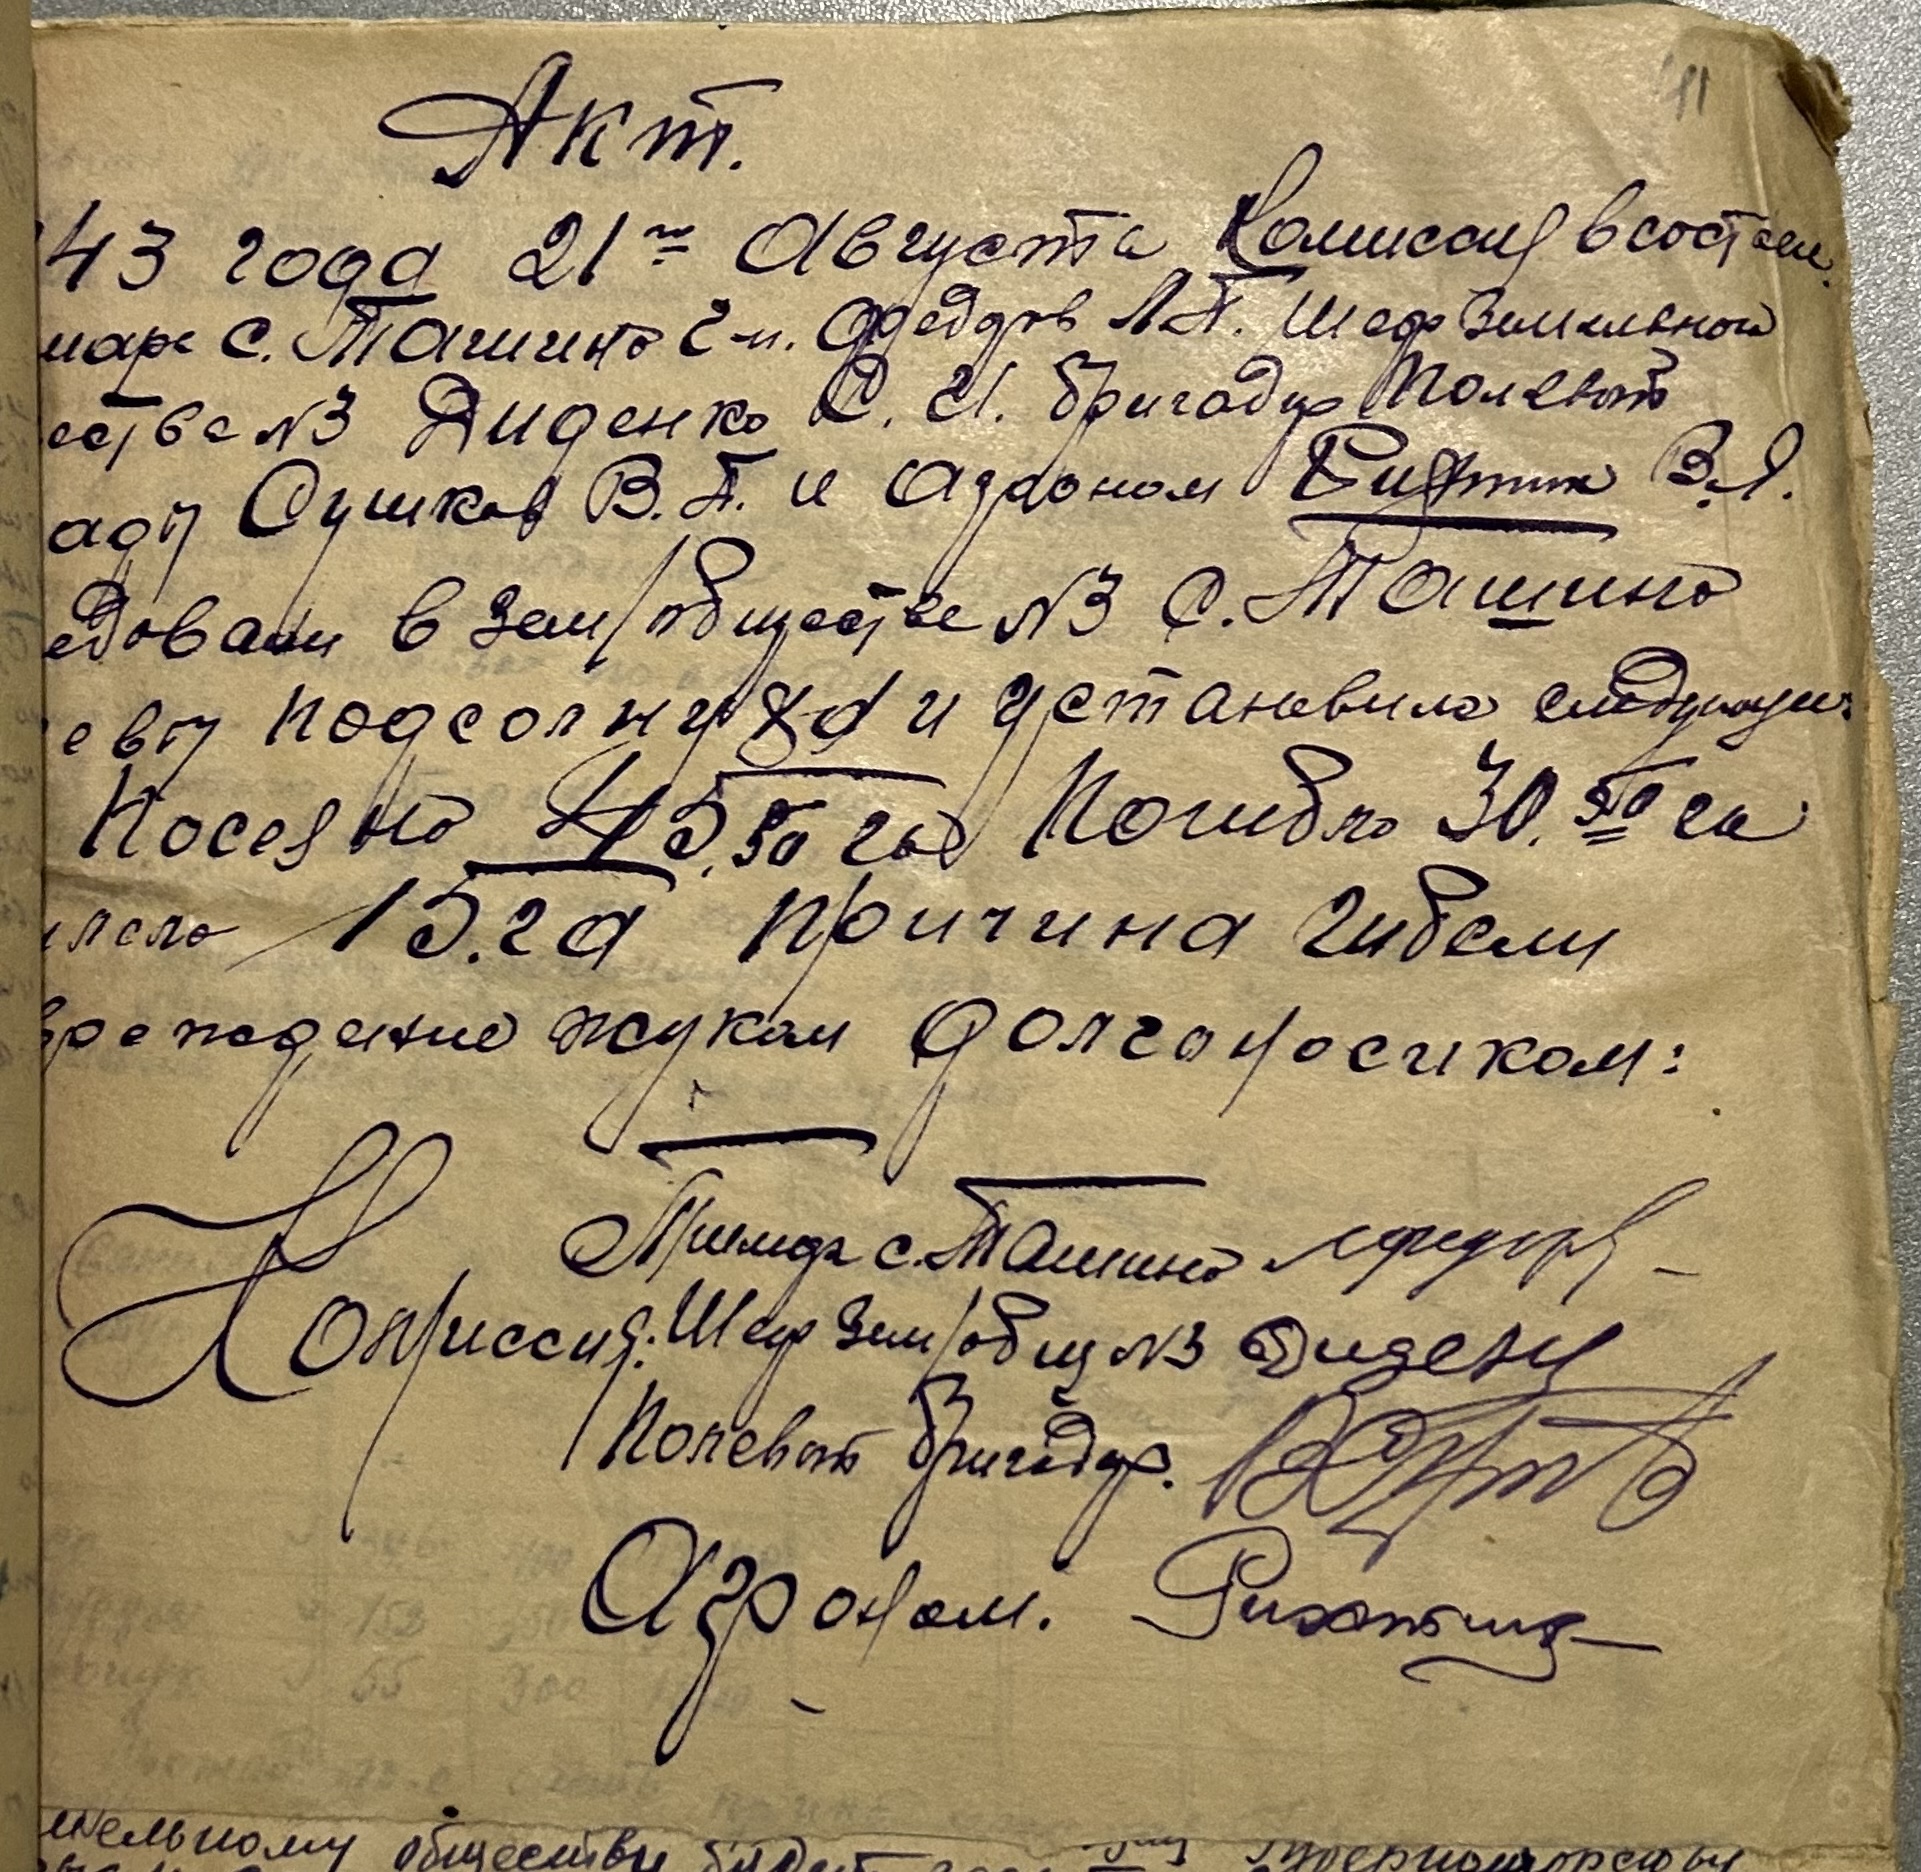 Акт.
43 года 21го Августа Комиссия в составе
с. Ташино г-н. Федоров Л.П. Шеф Земельной
№3 Диденко С. И. бригадир Полевой
Сушков В.П. и агроном В.Я.
едовали в Зем/обществе №3 с. Ташино
подсолнуха и установила следующ
Посеяно 45,50 га Погибло 30.50 га
15.га причина гибели
реждение жуком долгоносиком:
Примар с. Ташино
Комиссия: Шеф Зем/общ №3 Диденк
Полевой бригадир.
Агроном. Рихтик
ельному обществу будет